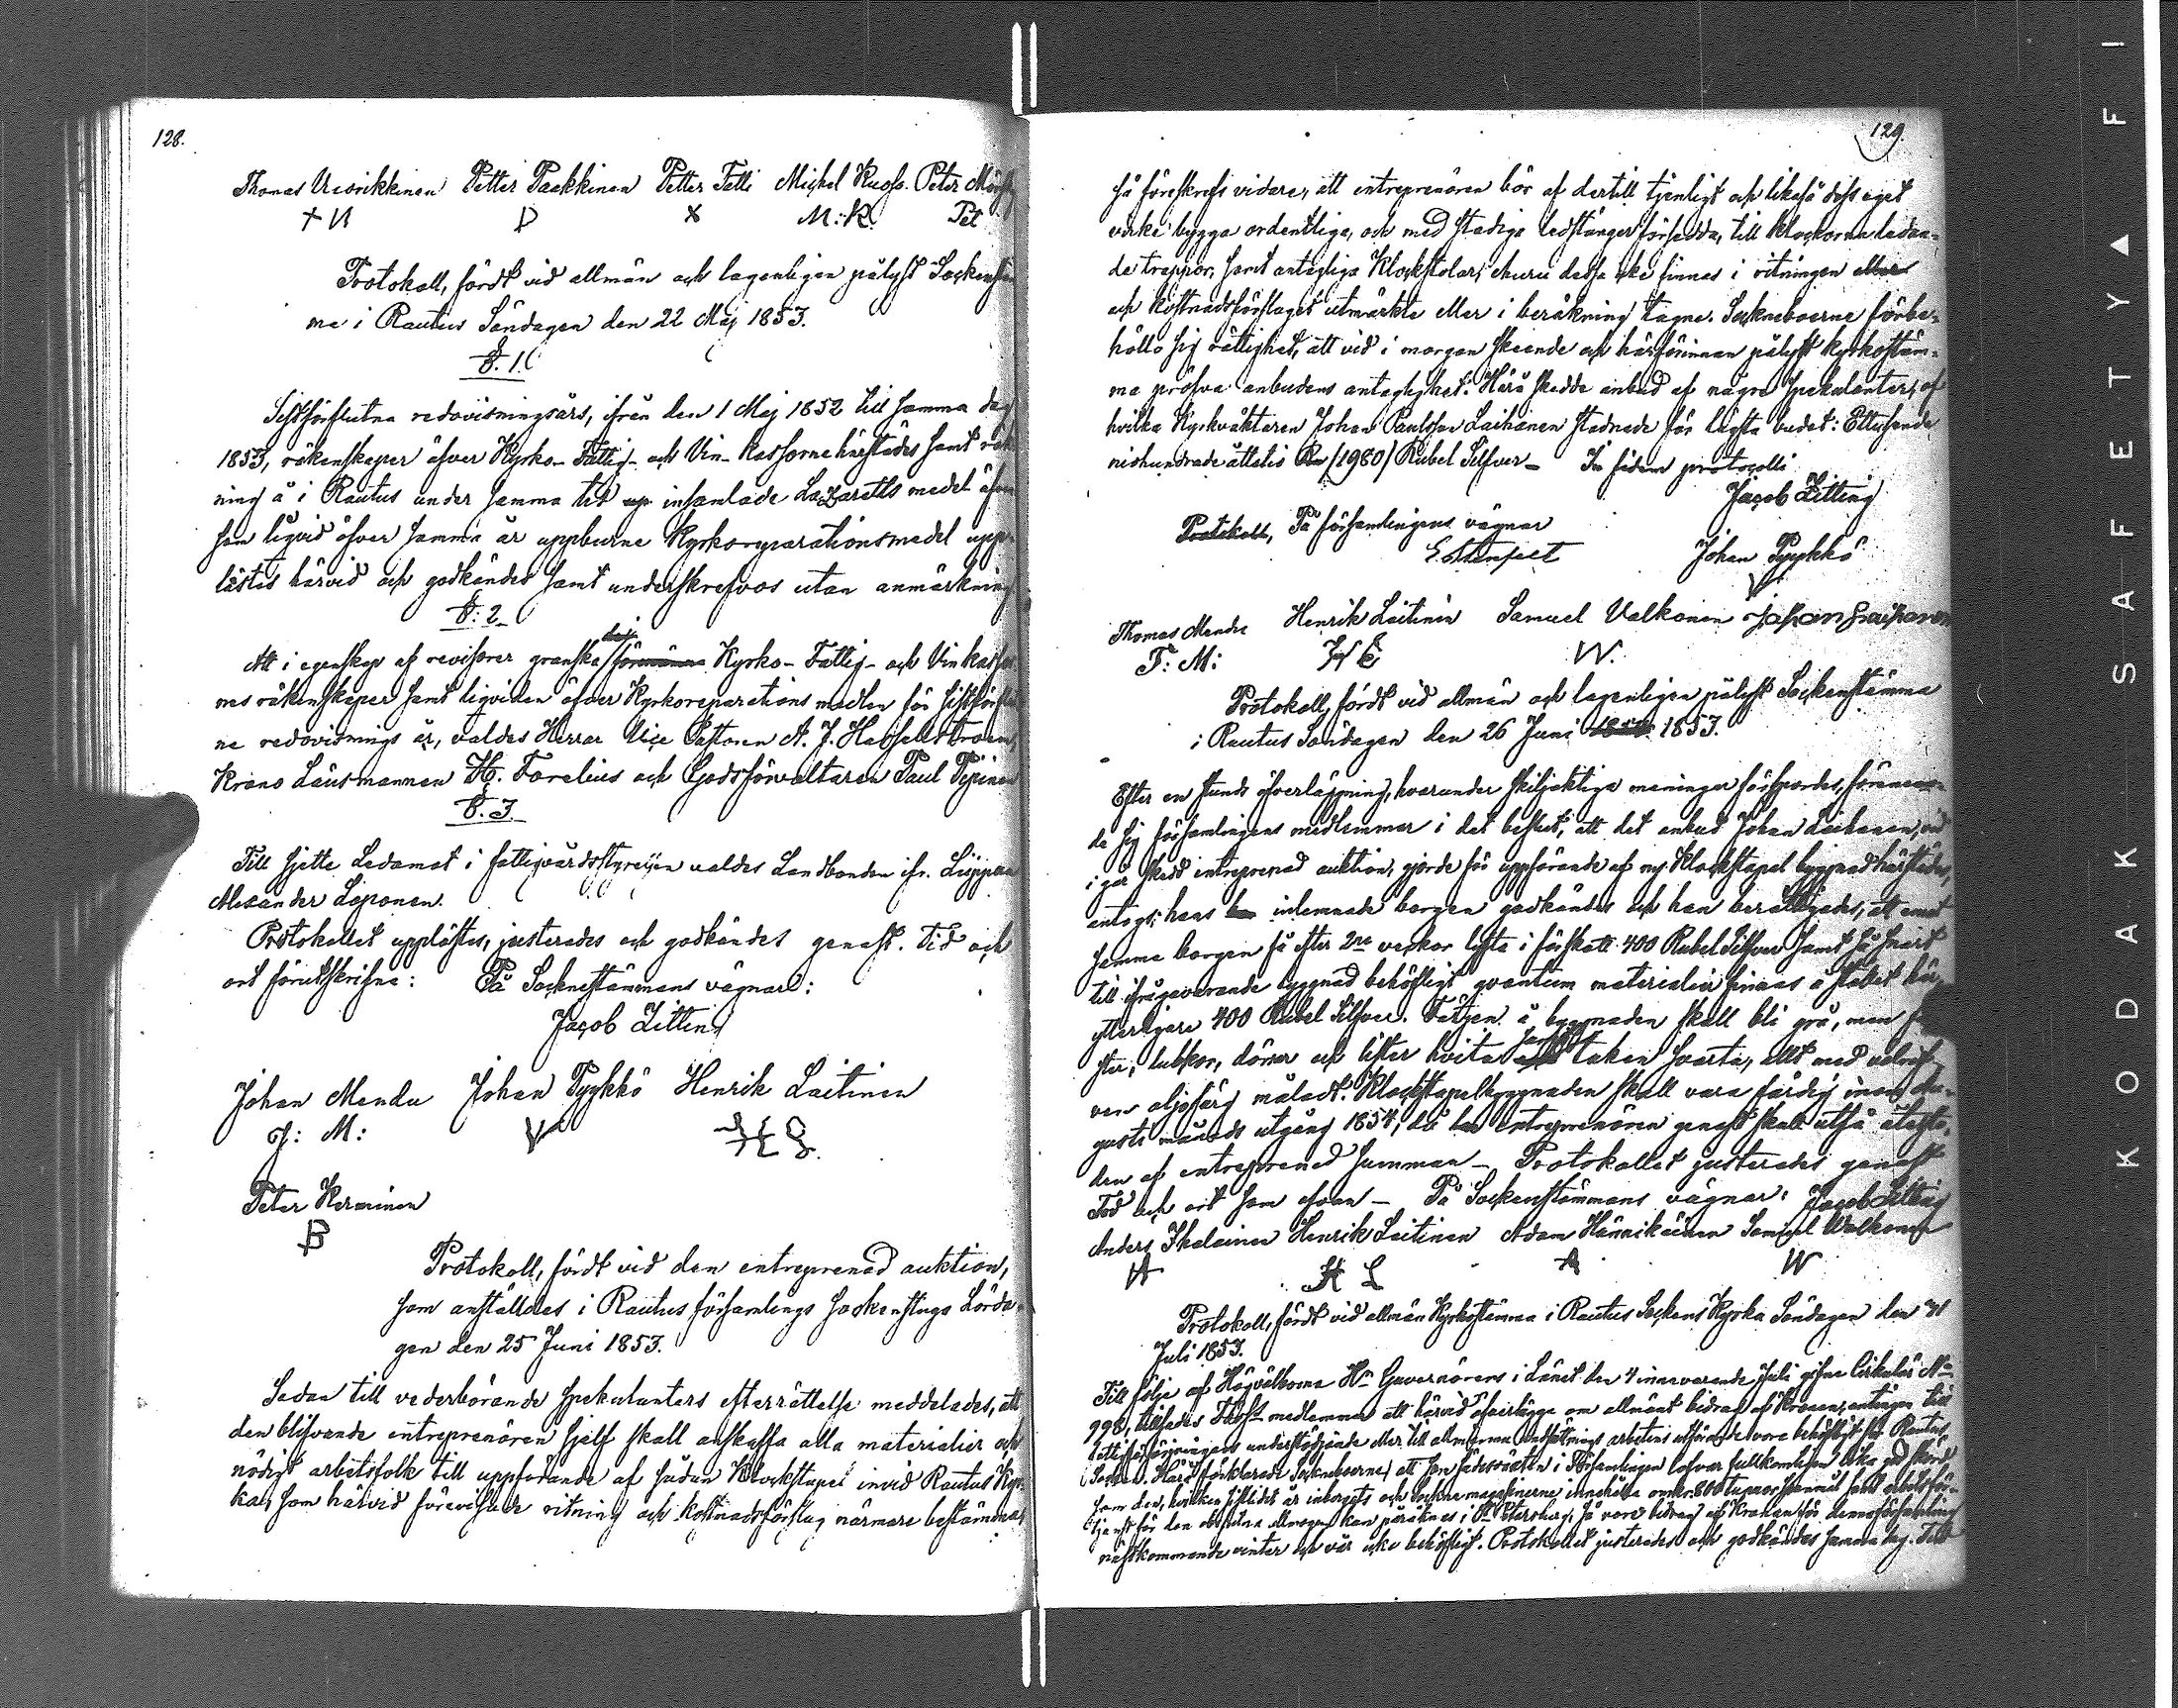 128.
Thomas Uusrikkinen Petter Paakkinen Petter Tatti Michel Kuoss. Peter
+ U P X M: K. Pet
Protokoll, fördt vid allmän och lagenligen pålyst Sockenstäm
ma i Rautus Söndagen den 22 Maj 1853.
§. 1.
Sistförflutna redovisningsårs, ifrån den 1 Maj 1852 till samma dag
1853, räkenskaper öfver Kyrko- Fattig- och Vin- kassorne härstädes samt räk
ning å i Rautus under samma tid insamlade Lazaretts medel äfven
som liqvid öfver samma år uppburne Kyrkoreparationsmedel upp-
lästes härvid och godkändes samt underskrefvos utan anmärkning
§: 2
Att i egenskap af revisorer granska Kyrko- Fattig- och Vin kassor
nes räkenskaper samt liqviden öfver Kyrkoreparations medlen för sistförflut
ne redovisnings år, valdes Herrar Vice Pastoren A. J. Hasselstroem,
Krono Länsmannen H. Forelius och Godsförvaltaren Paul Pipinen
§. 3.
Till sjette Ledamot i fattigvårdsstyrelsen valdes Landbonden ifr. Lippola
Alexander Loponen.
Protokollet upplästes, justerades och godkändes genast. Tid och
ort förutskrifne: På Sockenstämmans vägnar:
Jacob Zitting
Johan Mendu Johan Pyykkö Henrik Laitinen
J: M: V H L.
Peter Kerminen
B
Protokoll, fördt vid den entreprenad auktion,
som anstäldes i Rautus församlings sockenstuga Lörda-
gen den 25 Juni 1853.
Sedan till vederbörande spekulanters efterrättelse meddelades, att
den blifvande entreprenören sjelf skall anskaffa alla materialier och
nödigt arbetsfolk till uppförande af sådan Klockstapel invid Rautus Kyr-
ka, som härvid förevisade ritning och kostnadsförslag närmare bestämma,
129.
så föreskrefs vidare, att entreprenören bör af dertill tjenligt och likaså dess eget
virke bygga ordentliga, och med stadiga ledstänger försedda, till klockorna ledan-
de trappor, samt antagliga Klockstolar, ehuru dessa icke finnas i ritningen eller
och kostnadsförslaget utmärkte eller i beräkning tagne. Sockneboerne förbe-
höllo sig rättighet, att vid i morgon skeende och härförinnan pålyst kyrkostäm-
ma pröfva anbudens antaglighet. Härå skedde anbud af några spekulanter, af
hvilka Kyrkväktaren Johan Paulsson Laihanen stadnade för lägsta budet: Ettusende
niohundrade åttatio Ru (1980) Rubel Silfver- In fidem protocolli
Jacob Zitting
Protokoll, På församlingens vägnar
Johan Pyykkö
V
Thomas Mendu Henrik Laitinen Samuel Valkonen Johan Laihanen
T: M: H L W.
Protokoll, fördt vid allmän och lagenligen pålyst Sockenstämma
i Rautus Söndagen den 26 Juni 1853.
Efter en stunds öfverläggning, hvarunder skiljaktiga meningar försportes, förenana-
de sig församlingens medlemmar i det beslut, att det anbud Johan Laihanen, vid
i går skedd entreprenad auktion, gjorde för uppförande af ny Klockstapel byggnad härstädes,
antogs; hans inlemnade borgen godkändes och han berättigades, att emot
samma borgen få efter 2ne veckor lyfta i förskott 400 Rubel Silfver samt så snart
till ifrågavarande byggnad behöfligt qvantum materialier finnas å stället här,
ytterligare 400 Rubel Silfver. Färgen å byggnaden skall bli grå, men fön
ster, luckor, dörrar och lister hvita samt taken svarta, allt med
ven oljefärg måladt. Klockstapelbyggnaden skall vara färdig inom Au-
gusti månads utgång 1854, då entreprenören genast skall utfå återsto-
den af entreprenad summan- Protokollet justerades genast
Tid och ort som ofvan- På Sockenstämmans vägnar: Jacob Zitting
Anders Ikolainen Henrik Laitinen Adam Hännikäinen Samuel Walkonen
A H L A W
Protokoll, fördt vid allmän Kyrkostämma i Rautus Sockens Kyrka Söndagen den 31
Juli 1853.
Till följe af Högvälborne Hr Guvernörens i Länet den 4 innevarande Juli gifne Cirkulär No
998, tillsades Församlings medlemmar att härvid öfverlägga om allmänt bidrag af Kronan, antingen till
fattigförsörjningens understödjande eller till allmänna undsättnings arbetens utförande vore behöfligt för Rautus
Socken. Härå förklarade Sockneboerne, att som sädesväxten i Församlingen lofvar fullkomligen lika god skörd
som den, hvilken sistlidet år inbergats och Sockne magasinerne innehålla omkr. 800 Tunnor spannmål samt arbetsför-
tjenst för den obesutna allmogen kan påräknas i St. Petersburg, så vore bidrag af Kronan för denna församling
nästkommande vinter och vår icke behöfligt. Protokollet justerades och godkändes samma dag. Tid